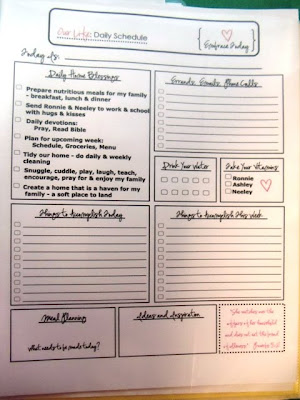 Our Life: Daily Schedule
Embrace Today
Today is:
Daily Home Blessings
Errands, Emails, Phone Calls
Prepare nutritious meals for my family
- breakfast, lunch & dinner
Send Ronnie & Neeley to work & school
with hugs & kisses
Daily devotions:
Pray, Read Bible
Plan for upcoming week:
Schedule, Groceries, Menu
Tidy our home - do daily & weekly
cleaning
Snuggle, cuddle, play, laugh, teach,
encourage, pray for & enjoy my family
Create a home that is a haven for my
family - a soft place to land
Drink Your Water
Take Your Vitamins
Ronnie
Ashley
Neeley
Things to Accomplish Today
Things to Accomplish This Week
Meal Planning
What needs to be made today?
Ideas and Inspiration
"She watches over the
affairs of her household
and does not eat the bread
of idleness." Proverbs